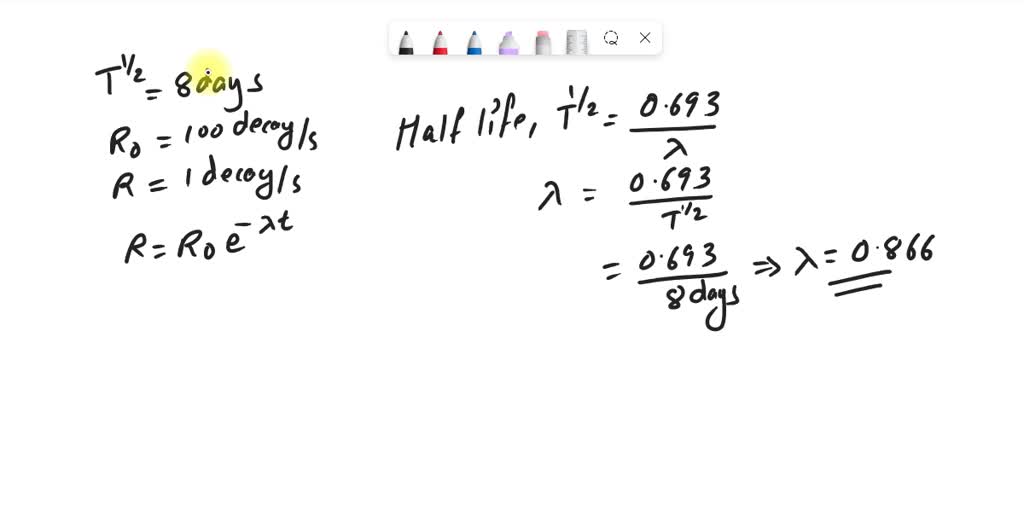 T^1/2 = 8 days
R₀ = 100 decay/s
R = 1 decay/s
R = R₀ e^-λt
Half life, T^1/2 = 0.693 / λ
λ = 0.693 / T^1/2
= 0.693 / 8 days ⇒ λ = 0.866